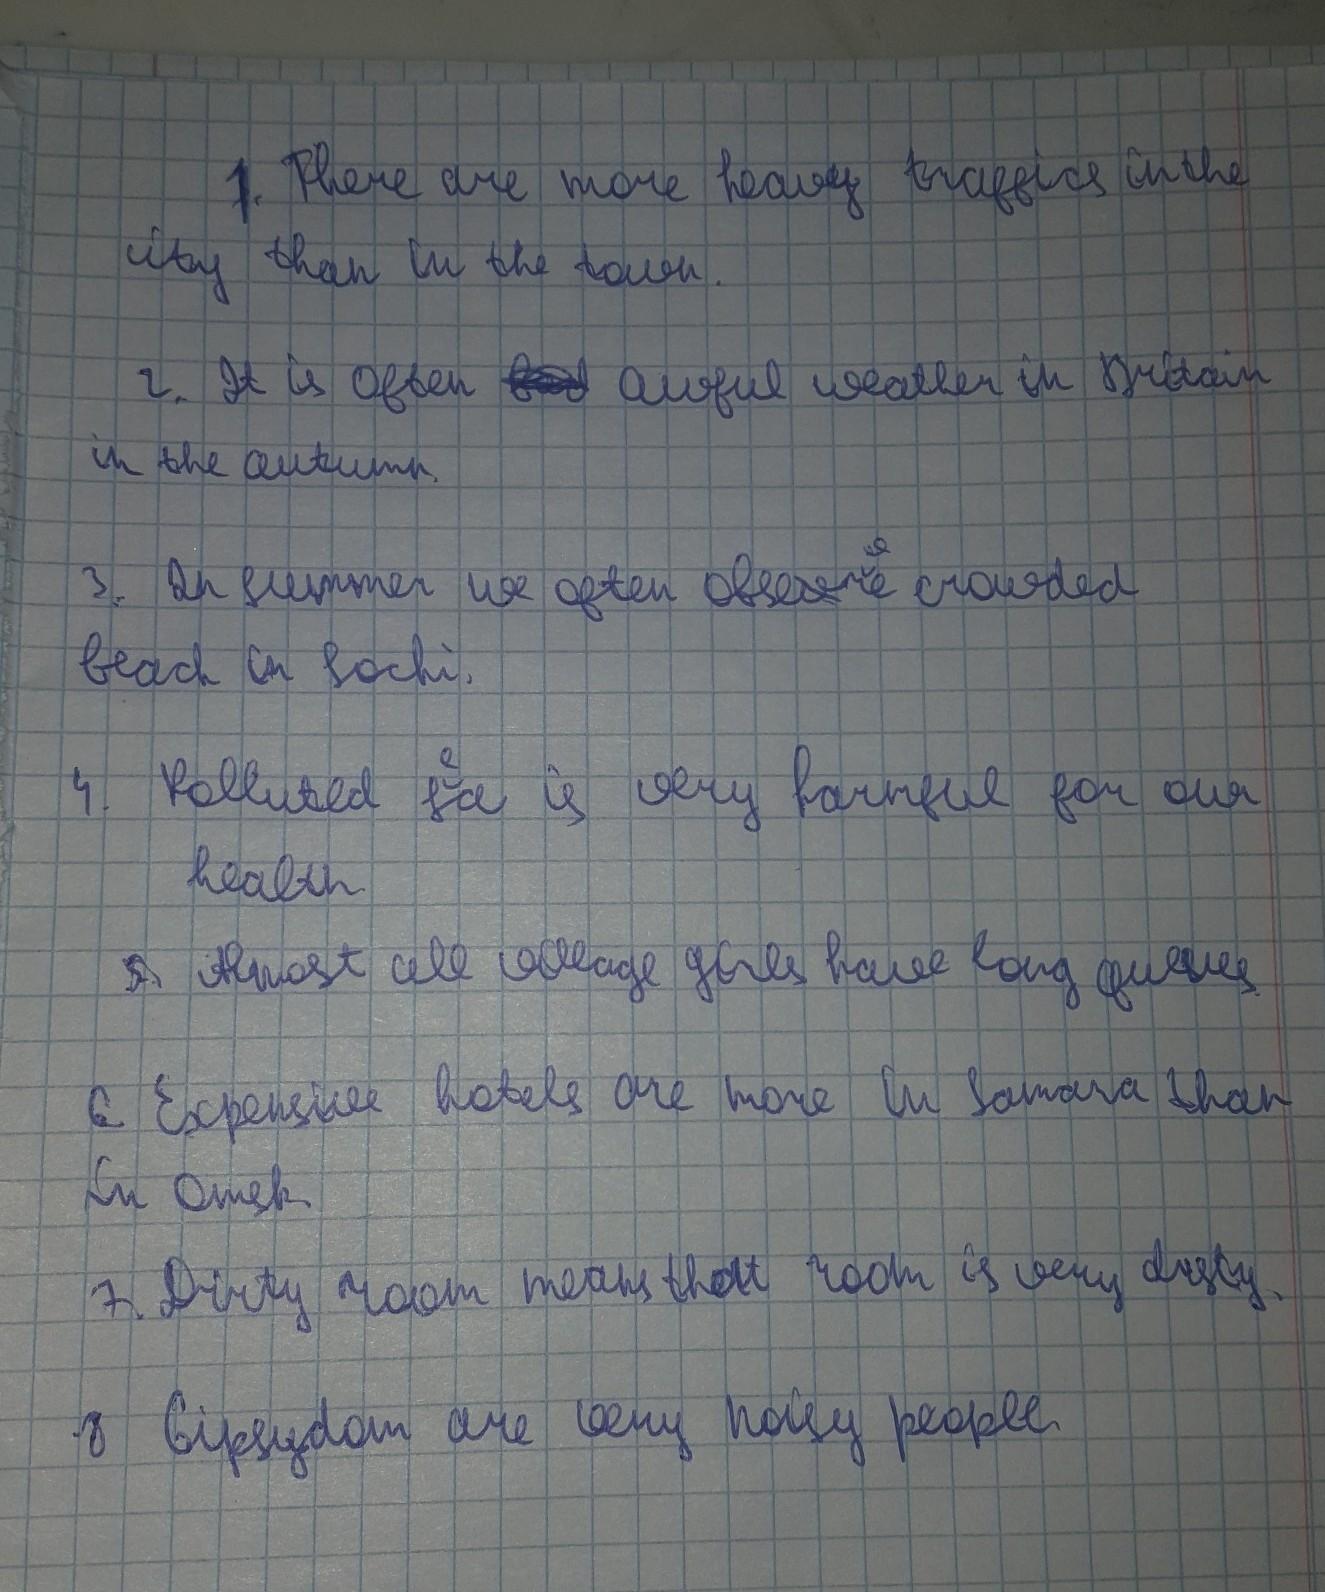 1. There are more heavy traffics in the
city than in the town.
2. It is often awful weather in Britain
in the autumn.
3. In summer we often observe crowded
beach in Sochi.
4. Polluted sea is very harmful for our
health
5. Almost all village girls have long queues
6 Expensive hotels are more in Samara than
in Omsk.
7. Dirty room means that room is very dusty.
8 Gipsydom are very noisy people.